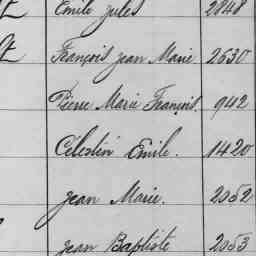 Emile Jules 2848
François Jean Marie 2630
Pierre Marie François. 942
Célestin Emile. 1420
Jean Marie. 2052
Jean Baptiste 2053